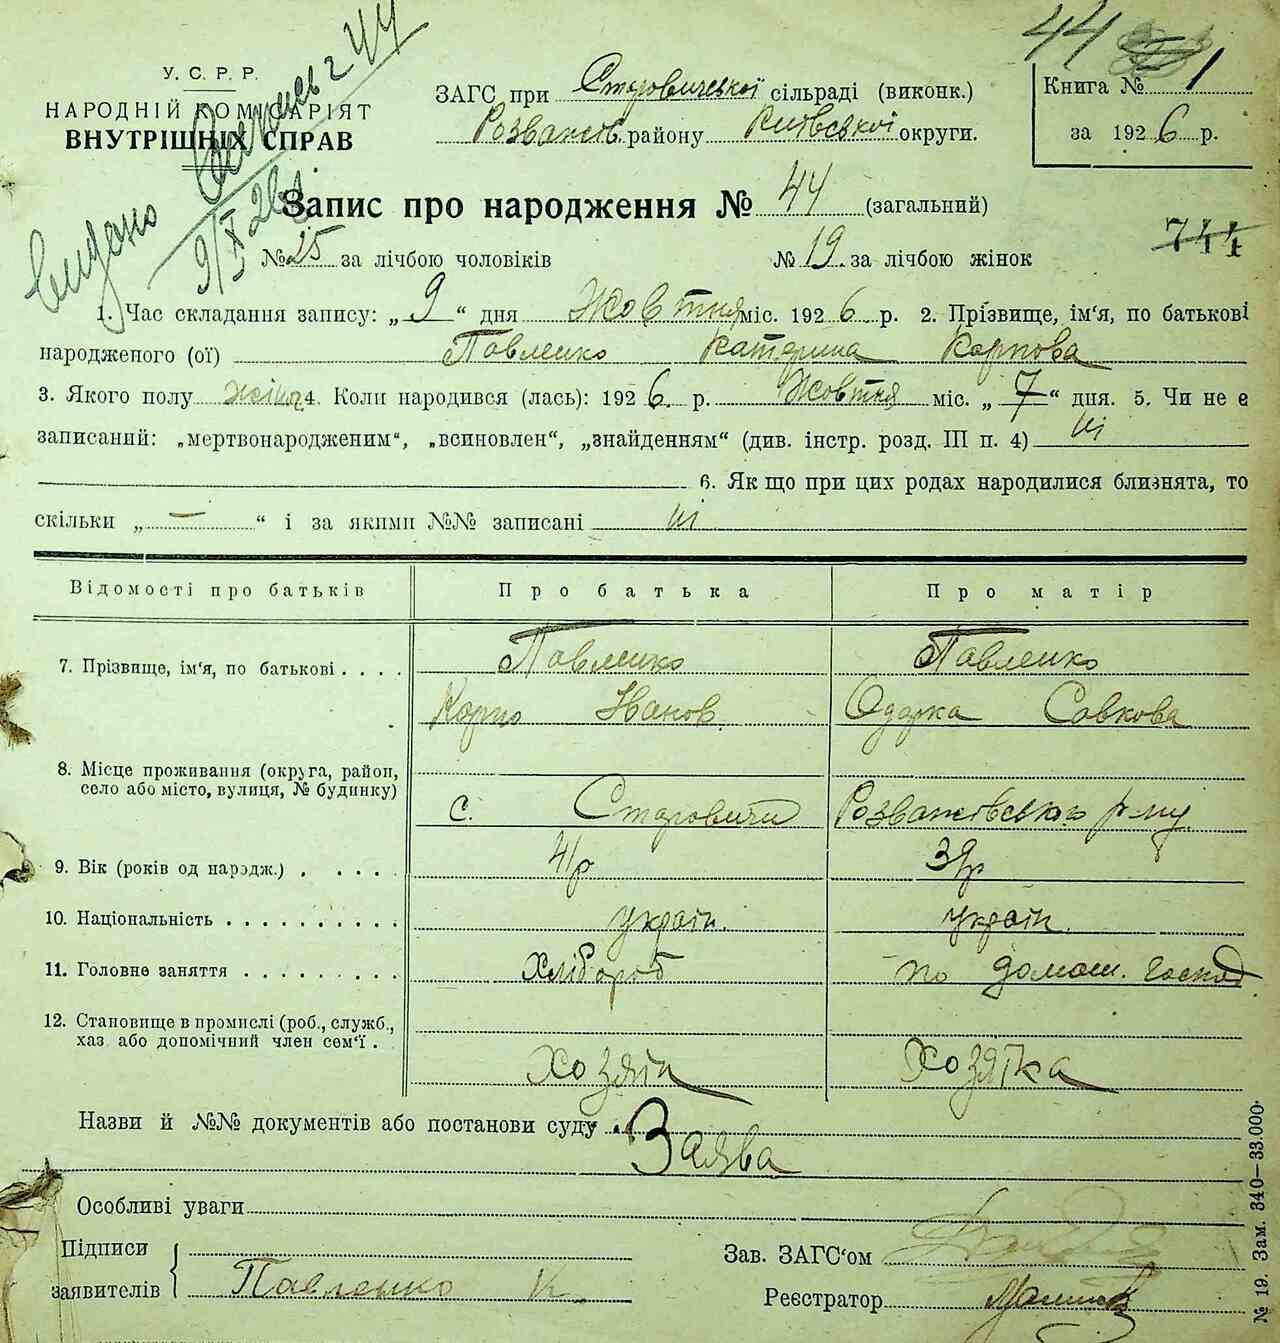 44
У. С. Р. Р.
НАРОДНІЙ КОМІСАРІЯТ
ВНУТРІШНІХ СПРАВ
видано Запись 244
9/X 26
ЗАГС при Старовичської сільраді (виконк.)
Розважів. району Київської округи.
Книга № 1
за 1926 р.
Запис про народження № 44 (загальний)
744
№ 25 за лічбою чоловіків № 19 за лічбою жінок
1. Час складання запису: „9“ дня Жовтня міс. 1926 р. 2. Прізвище, ім'я, по батькові
народженого (ої) Павленко Катерина Карпова
3. Якого полу жіноч 4. Коли народився (лась): 1926 р. Жовтня міс. „7“ дня. 5. Чи не є
записаний: „мертвонародженим“, „всиновлен“, „знайденням“ (див. інстр. розд. III п. 4) ні
6. Як що при цих родах народилися близнята, то
скільки „ — “ і за якими №№ записані ні
Відомості про батьків Про батька Про матір
7. Прізвище, ім'я, по батькові . . . . Павленко Павленко
Карпо Іванов Одарка Савкова
8. Місце проживання (округа, район,
село або місто, вулиця, № будинку)
с. Старовичи Розважівського р-ну
9. Вік (років од народж.) . . . . . 41 р 39 р
10. Національність . . . . . . . . . . україн. україн.
11. Головне заняття . . . . . . . . . Хлібороб по домаш. господ
12. Становище в промислі (роб., служб.,
хаз. або допомічний член сем'ї .
Хозяїн Хозяїка
Назви й №№ документів або постанови суду
Заява
Особливі уваги
Підписи
заявителів
Павленко К
Зав. ЗАГС'ом
Реєстратор
№ 19. Зам. 340—33.000.